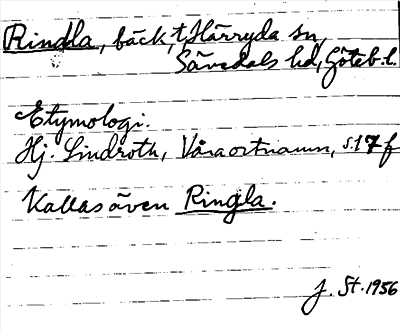 Rindla, bäck, t, Härryda sn,
Sävedals hd, Göteb. l.
Etymologi.
Hj. Lindroth, Våra ortnamn, s. 17 f
Kallas även Ringla.
J. St. 1956